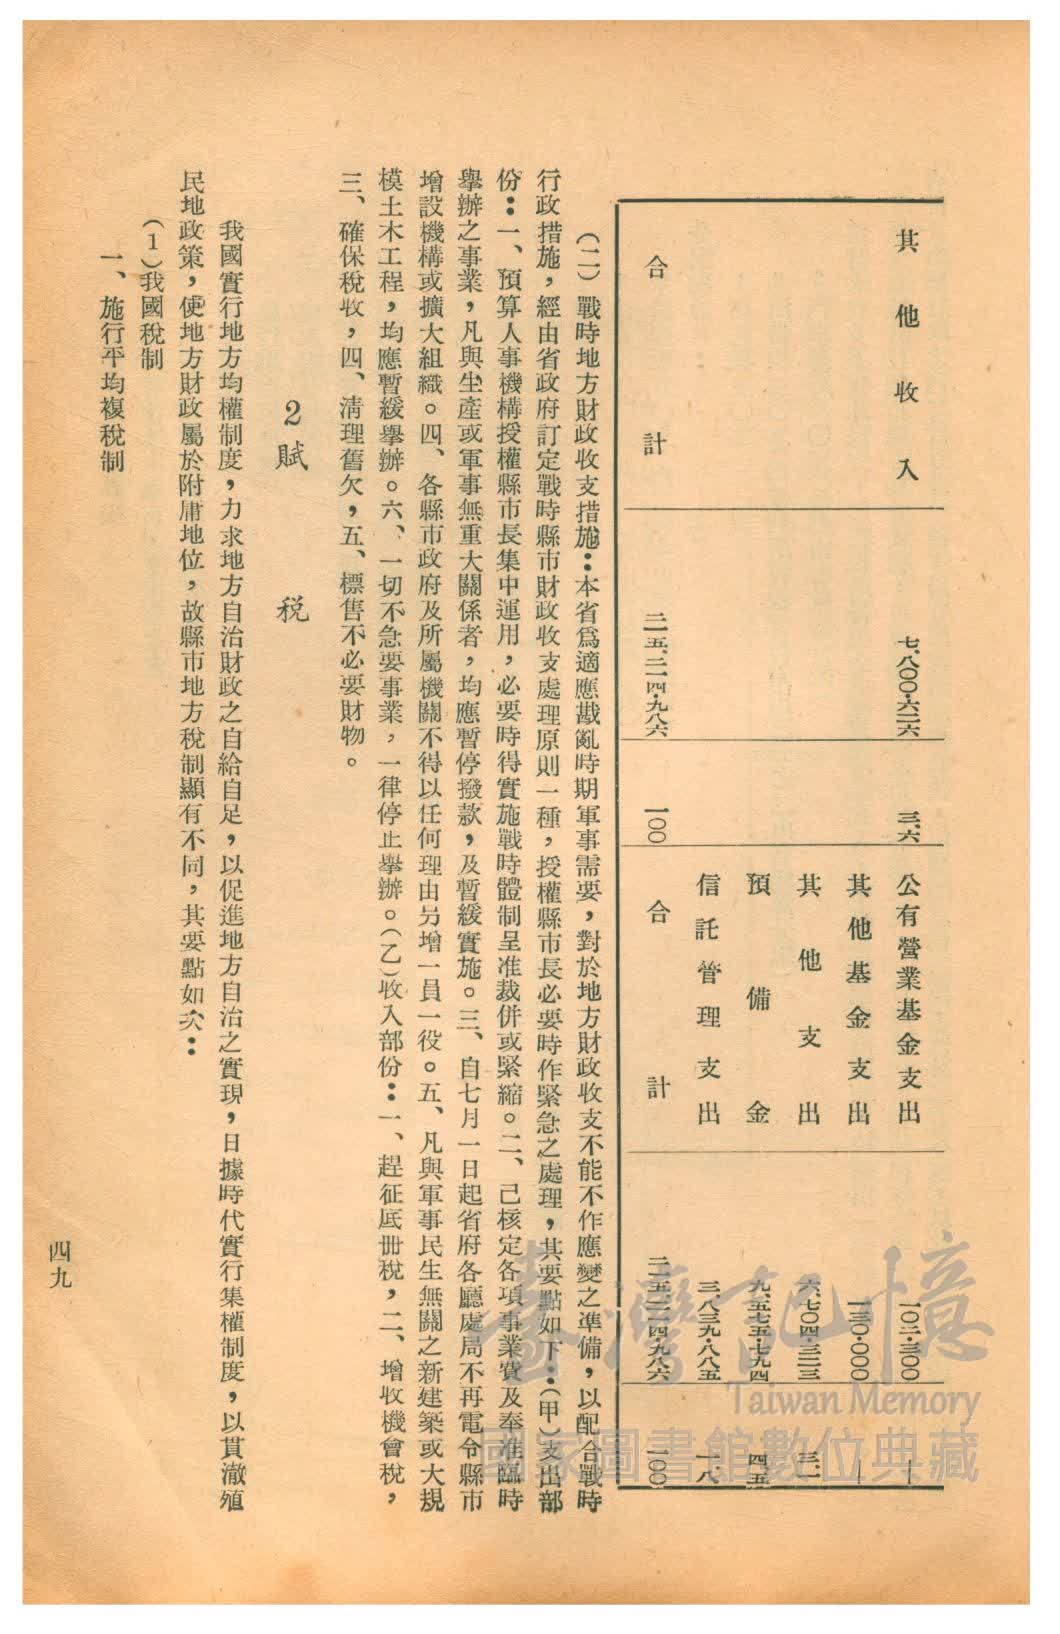 其他收入　七、八〇〇・六二六　三・六　公有營業基金支出　一〇二・三〇〇　—
其他基金支出　一三〇・〇〇〇　—
其他支出　六、七〇四・三二三　三・一
預備金　九、五七五・七九四　四・五
信託管理支出　三、八三九・八八五　一・八
合計　二一五、二一四・九八六　一〇〇　合計　二一五、二一四・九八六　一〇〇
（二）戰時地方財政收支措施：本省爲適應戡亂時期軍事需要，對於地方財政收支不能不作應變之準備，以配合戰時
行政措施，經由省政府訂定戰時縣市財政收支處理原則一種，授權縣市長必要時作緊急之處理，其要點如下：（甲）支出部
份：一、預算人事機構授權縣市長集中運用，必要時得實施戰時體制呈准裁併或緊縮。二、己核定各項事業費及奉准臨時
舉辦之事業，凡與生產或軍事無重大關係者，均應暫停撥款，及暫緩實施。三、自七月一日起省府各廳處局不再電令縣市
增設機構或擴大組織。四、各縣市政府及所屬機關不得以任何理由另增一員一役。五、凡與軍事民生無關之新建築或大規
模土木工程，均應暫緩舉辦。六、一切不急要事業，一律停止舉辦。（乙）收入部份：一、趕征底冊稅，二、增收機會稅，
三、確保稅收，四、淸理舊欠，五、標售不必要財物。
2 賦稅
我國實行地方均權制度，力求地方自治財政之自給自足，以促進地方自治之實現，日據時代實行集權制度，以貫澈殖
民地政策，使地方財政屬於附庸地位，故縣市地方稅制顯有不同，其要點如次：
（1）我國稅制
一、施行平均複稅制
四九
臺灣記憶
Taiwan Memory
國家圖書館數位典藏